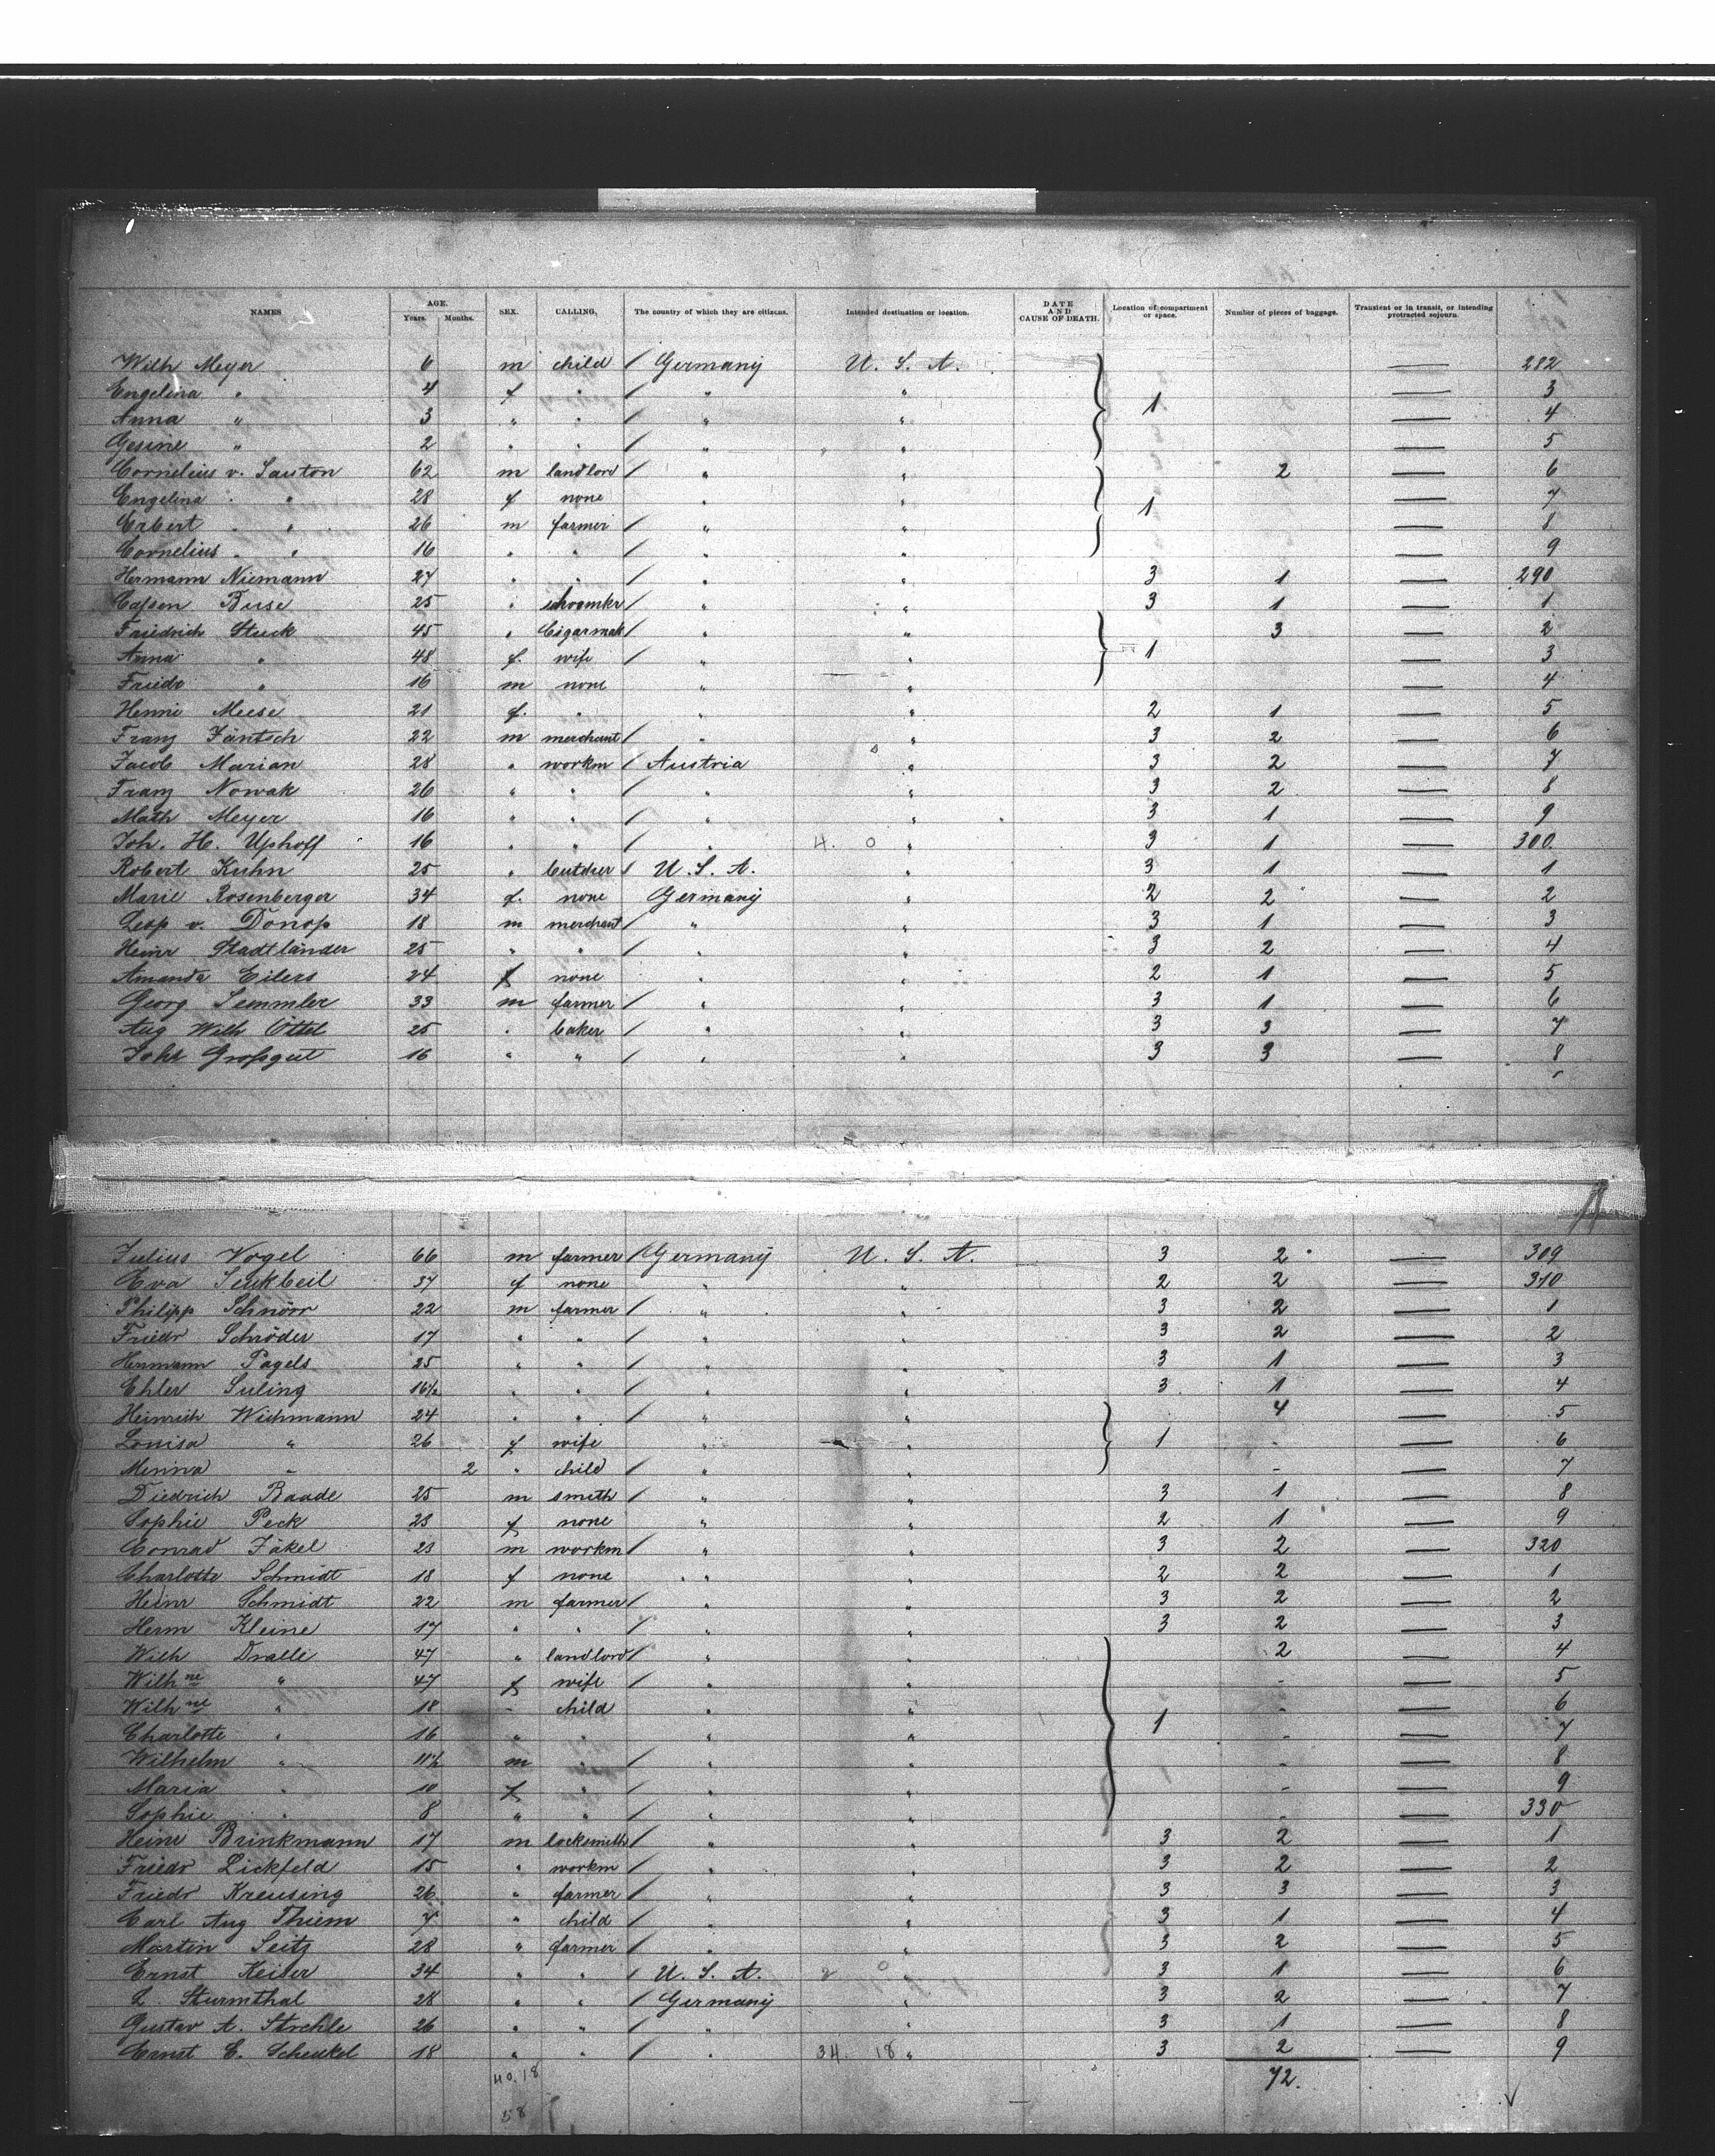 NAMES AGE. Years. Months. SEX. CALLING, The country of which they are citizens. Intended destination or location. DATE AND CAUSE OF DEATH. Location of compartment or space. Number of pieces of baggage. Transient or in transit, or intending protracted sojourn.
Wilh Meyer 6 m child / Germany U. S. A. — 282
Engelina " 4 f " / " " 1 — 3
Anna " 3 " " / " " — 4
Gesine " 2 " " / " " — 5
Cornelius v. Santon 62 m landlord / " " 2 — 6
Engelina " " 28 f none " " 1 — 7
Erbert " " 26 m farmer / " " — 8
Cornelius " " 16 " " / " " — 9
Hermann Niemann 27 " " / " " 3 1 — 290
Caßen Buse 25 " schoomkr / " " 3 1 — 1
Friedrich Stuck 45 " Cigarmak / " " 3 — 2
Anna " 48 f. wife / " " 1 — 3
Friedr " 16 m none " " — 4
Henni Meese 21 f. " " " 2 1 — 5
Franz Jäntsch 22 m merchant / " " 3 2 — 6
Jacob Marian 28 " workm / Austria " 3 2 — 7
Franz Nowak 26 " " / " " 3 2 — 8
Math Meyer 16 " " / " " 3 1 — 9
Joh. H. Uphoff 16 " " / " 4. 0 " 3 1 — 300.
Robert Kuhn 25 " butcher / U. S. A. " 3 1 — 1
Marie Rosenberger 34 f. none Germany " 2 2 — 2
Leop v. Donop 18 m merchant / " " 3 1 — 3
Heinr Stadtländer 25 " " / " " 3 2 — 4
Amanda Eilers 24 f none " " 2 1 — 5
Georg Semmler 33 m farmer / " " 3 1 — 6
Aug Wilh Öttel 25 " baker / " " 3 3 — 7
Johs Großgut 16 " " / " " 3 3 — 8
Julius Vogel 66 m farmer / Germany U. S. A. 3 2 — 309
Eva Seukbeil 37 f none " " 2 2 — 310
Philipp Schnörr 22 m farmer / " " 3 2 — 1
Friedr Schröder 17 " " / " " 3 2 — 2
Hermann Pagels 25 " " / " " 3 1 — 3
Ehler Suling 16½ " " / " " 3 1 — 4
Heinrich Wichmann 24 " " / " " 4 — 5
Louisa " 26 f wife " " 1 - — 6
Meinna " 2 " child / " " - — 7
Diedrich Baade 25 m smith / " " 3 1 — 8
Sophie Peck 23 f none " " 2 1 — 9
Conrad Jäkel 23 m workm / " " 3 2 — 320
Charlotte Schmidt 18 f none " " 2 2 — 1
Heinr Schmidt 22 m farmer / " " 3 2 — 2
Herm Kleine 17 " " / " " 3 2 — 3
Wilh Dralle 47 " landlord / " " 2 — 4
Wilhne " 47 f wife / " " - — 5
Wilhne " 18 - child " " - — 6
Charlotte " 16 " " " " 1 - — 7
Wilhelm " 11½ m " / " " - — 8
Maria " 10 f " / " " - — 9
Sophie " 8 " " / " " - — 330
Heinr Brinkmann 17 m locksmith / " " 3 2 — 1
Friedr Lickfeld 15 " workm / " " 3 2 — 2
Friedr Kreusing 26 " farmer / " " 3 3 — 3
Carl Aug Thiem 7 " child / " " 3 1 — 4
Martin Seitz 28 " farmer / " " 3 2 — 5
Ernst Keiser 34 " " / U. S. A. 2 0 " 3 1 — 6
L. Sturmthal 28 " " / Germany " 3 2 — 7
Gustav A. Strehle 26 " " / " " 3 1 — 8
Ernst C. Schenkel 18 " " / " 34. 18 " 3 2 — 9
40.18 72.
58